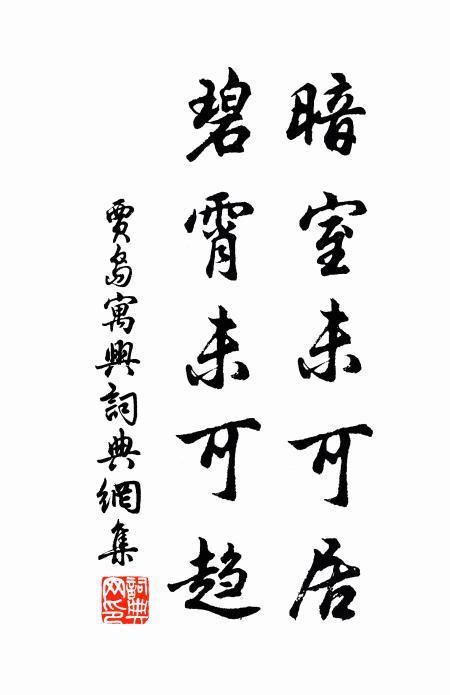 暗室未可居
碧霄未可趋
賈島寓興詞典網集
詞典
网印